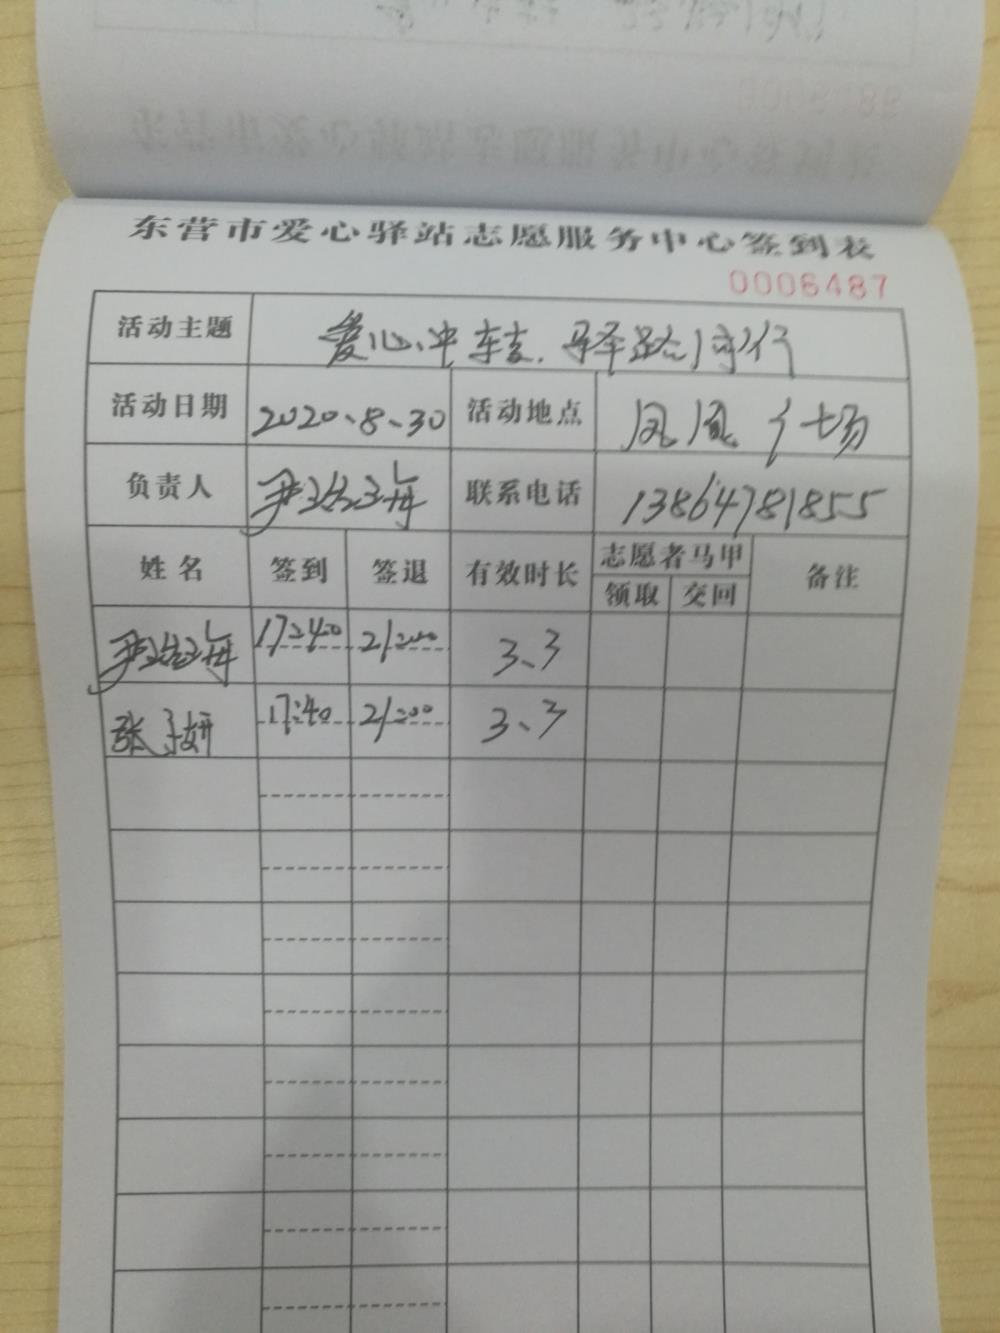 东营市爱心驿站志愿服务中心签到表
0006487
活动主题 爱心冲转.驿路同行
活动日期 2020.8.30 活动地点 凤凰广场
负责人 联系电话 13864781855
姓名 签到 签退 有效时长 志愿者马甲 备注
领取 交回
17:40 21:00 3.3
张子妍 17:40 21:00 3.3